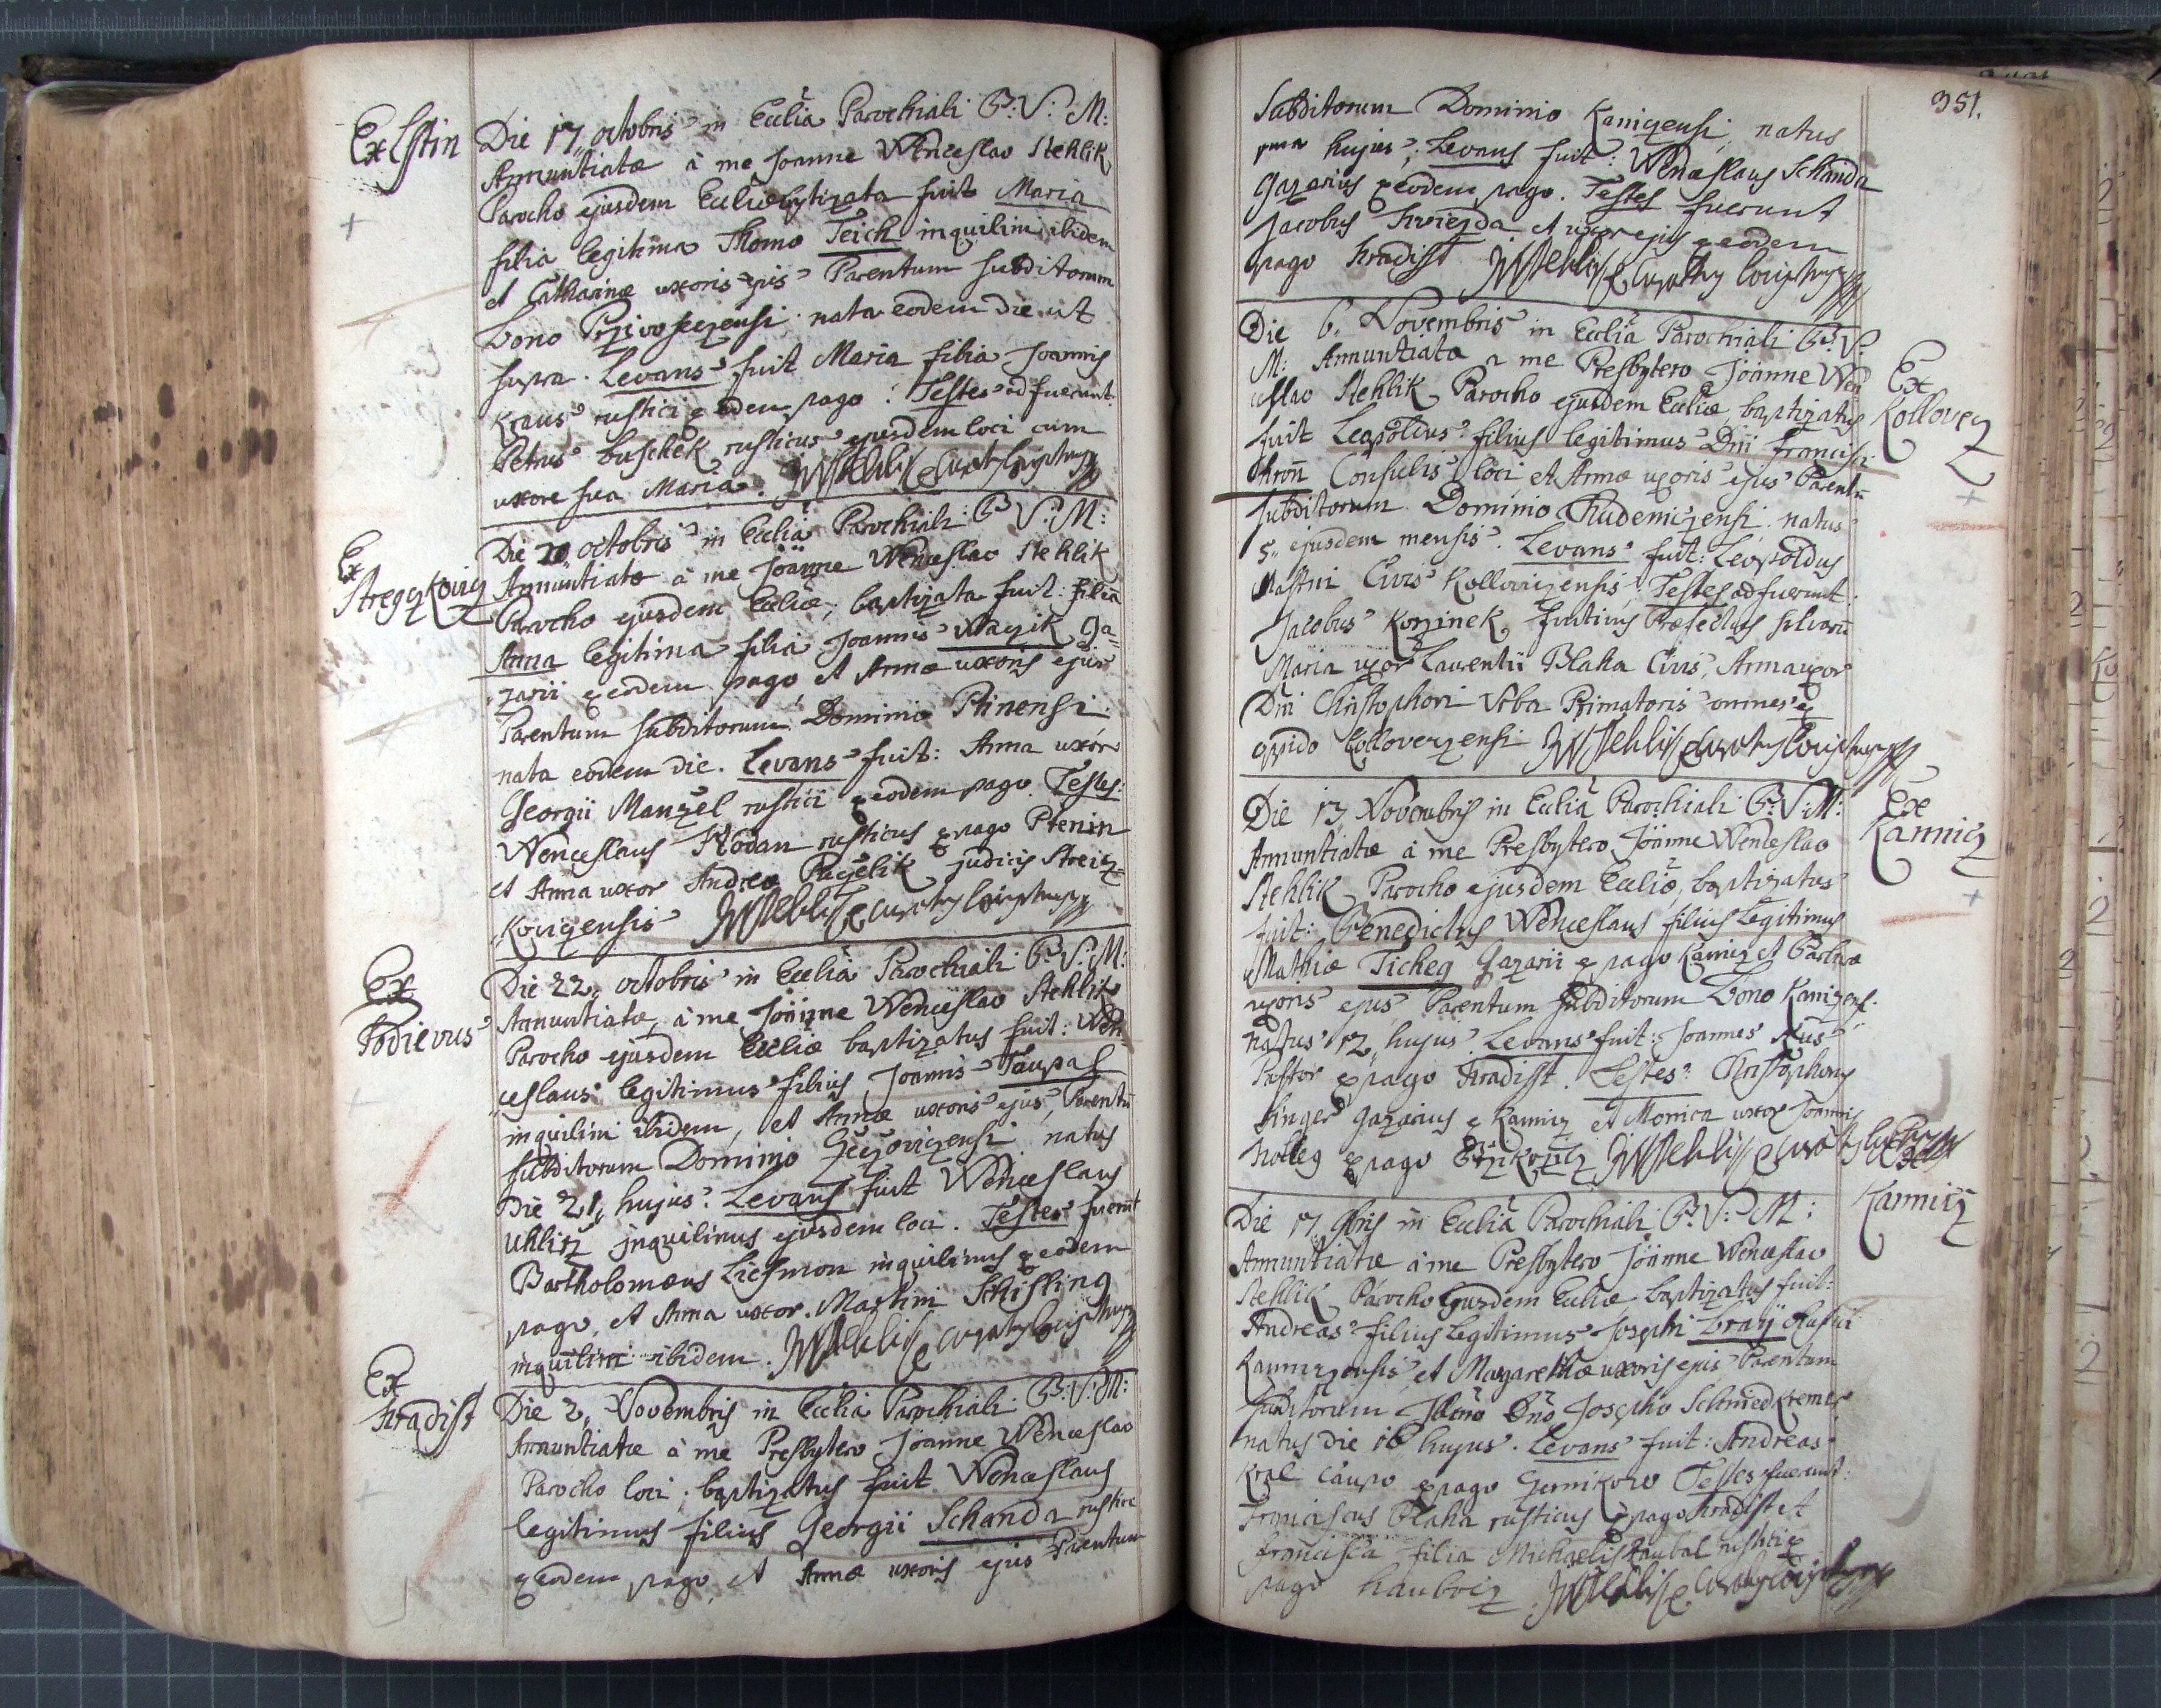 Ex Lstin
Die 17, octobris in Ecclia Parochiali B: V: M:
Annuntiatæ à me Joanne Wenceslao Stehlik
Parocho ejusdem Eccliæ baptizata fuit Maria
filia legitima Thomæ Teich inquilini ibidem
et Catharinæ uxoris ejus Parentum subditorum
Bono nata eodem die ut
supra. Levans fuit Maria filia Joannis
Kraus rustici ex eodem pago. Testes adfuerunt
Petrus Buschek rusticus ejusdem loci cum
uxore sua Maria.
Ex
Die octobris in Ecclia Parochiali B: V: M:
Annuntiatæ à me Joanne Wenceslao Stehlik
Parocho ejusdem Eccliæ, baptizata fuit: filia
Anna legitima filia Joannis Wazik Ga-
zarii ex eodem pago et Annæ uxoris ejus
Parentum subditorum Dominio Ptinensi
nata eodem die. Levans fuit: Anna uxor
Georgii Manzel rustici ex eodem pago. Testes:
Wenceslaus Kodan rusticus ex pago Ptenin
et Anna uxor Andreæ judicis Streicz-
kovicensis
Ex
Die 22, octobris in Ecclia Parochiali B: V: M:
Annuntiatæ, à me Joanne Wenceslao Stehlik
Parocho ejusdem Eccliæ baptizatus fuit: Wen
ceslaus legitimus filius Joannis Taupal
inquilini ibidem, et Annæ uxoris ejus, Parentū
subditorum Dominio natus
Die 21, hujus. Levans fuit Wenceslaus
Uhlirz inquilinus ejusdem loci. Testes fuerūt
Bartholomæus inquilinus ex eodem
pago, et Anna uxor Martini Schisling
inquilini ibidem.
Ex
Hradist
Die 2, Novembris in Ecclia Parochiali B: V: M:
Annuntiatæ à me Presbytero Joanne Wenceslao
Parocho loci, baptizatus fuit Wenceslaus
legitimus filius Georgii Schanda rustici
ex eodem pago, et Annæ uxoris ejus Parentum
351.
Subditorum Dominio Kanizensi, natus
hujus; Levans fuit: Wenceslaus Schanda
Gazarius ex eodem pago. Testes fuerunt
Jacobus Hwiezda et uxor ejus ex eodem
pago Hradisst
Die 6. Novembris in Ecclia Parochiali B: V:
M: Annuntiatæ a me Presbytero Joanne Wen
ceslao Stehlik, Parocho ejusdem Eccliæ, baptizatus
fuit Leopoldus filius legitimus Dni Francisci
Thronn Consulis loci et Annæ uxoris ejus Parentū
subditorum Dominio Chudenizensi natus
5, ejusdem mensis. Levans fuit: Leopoldus
Civis Testes adfuerunt
Jacobus Korzinek Præfectus silvarū
Maria uxor Laurentii Blaha Civis, Anna uxor
Dni Christophori Vrba Primatoris omnes ex
oppido
Ex
Kollovecz
Die 13, Novembris in Ecclia Parochiali B: V: M:
Annuntiatæ à me Presbytero Joanne Wenceslao
Stehlik, Parocho ejusdem Eccliæ, baptizatus
fuit: Benedictus Wenceslaus filius legitimus
Mathiæ Ticheg Gazarii ex pago Kanicz et Barbaræ
uxoris ejus Parentum subditorum Bono
natus 12, hujus. Levans fuit: Joannes Rus
Pastor ex pago Hradisst. Testes: Christophorus
Singer Gazarius ex Kannicz et Monica uxor Joannis
ex pago
Ex
Kannicz
Die 17, 9bris in Ecclia Parochiali B: V: M:
Annuntiatæ à me Presbytero Joanne Wenceslao
Stehlik Parocho ejusdem Eccliæ baptizatus fuit:
Andreas filius legitimus Josephi rustici
Kannizensis et Margarethæ uxoris ejus Parentum
subditorum Dno Josepho
natus die 16 hujus. Levans fuit: Andreas
Kral caupo ex pago Testes fuerunt:
Franciscus Blaha rusticus ex pago Hradist et
Francisca filia Michaelis rustici ex
pago
Kannicz